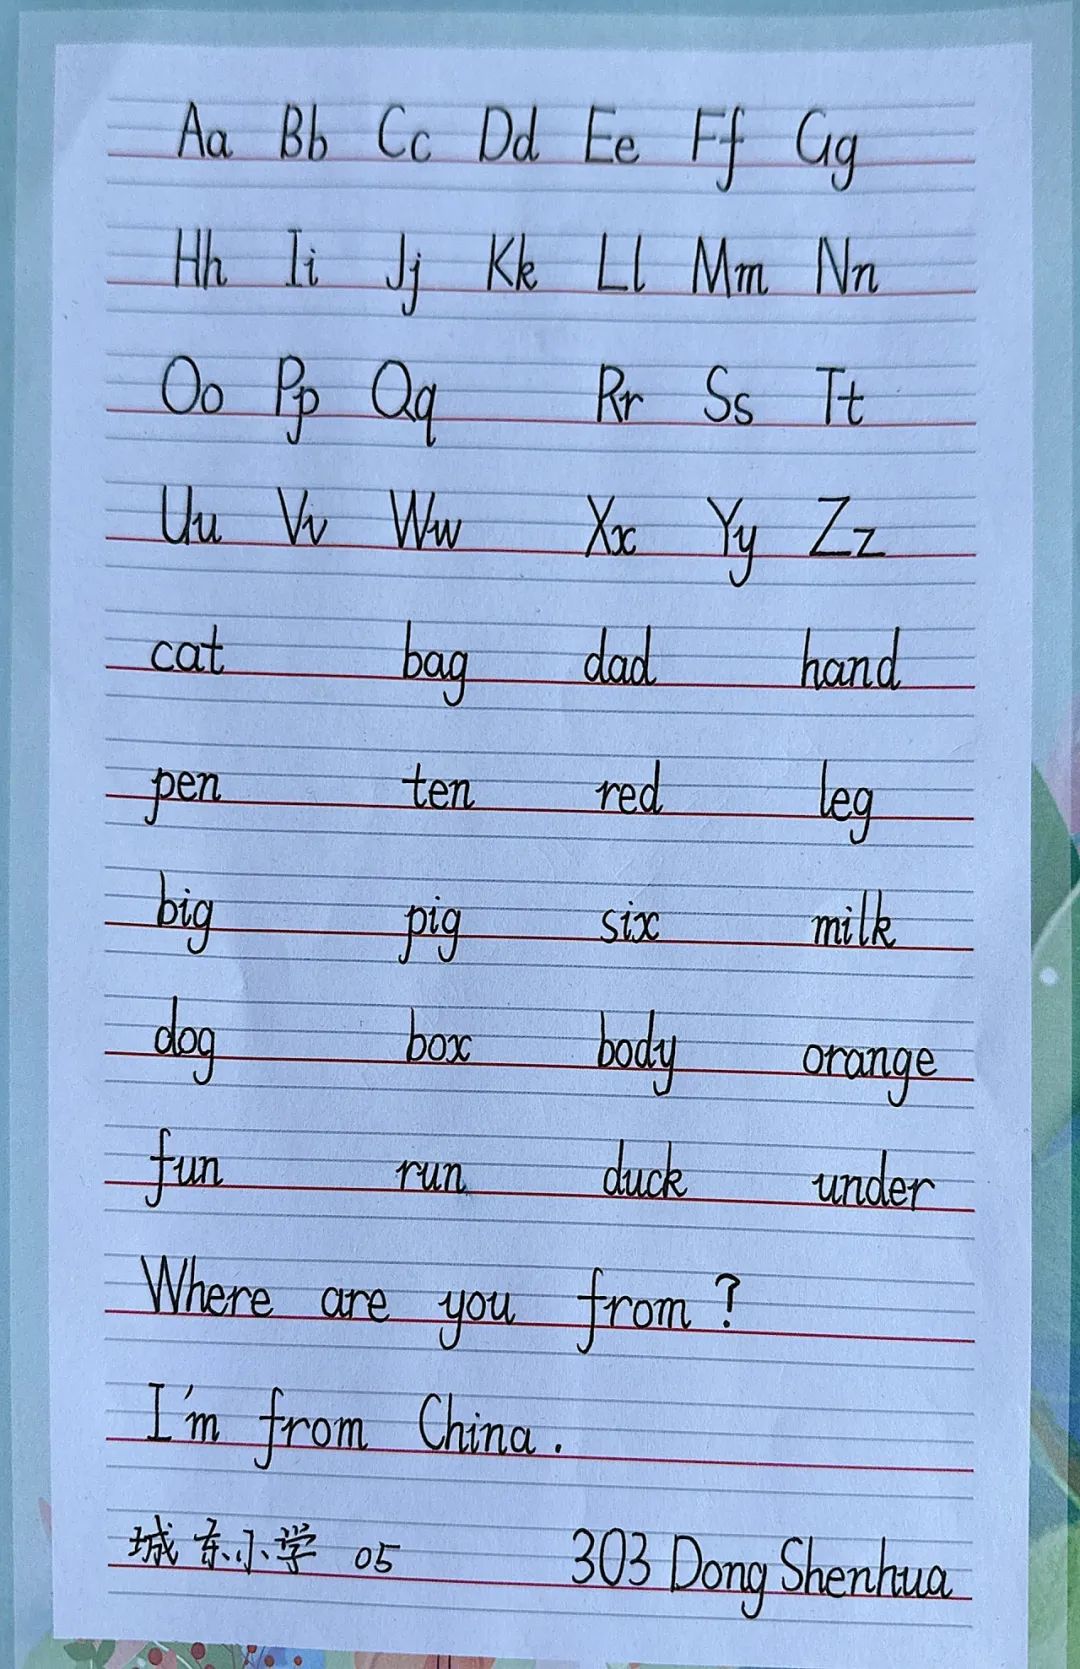 Aa Bb Cc Dd Ee Ff Gg
Hh Ii Jj Kk Ll Mm Nn
Oo Pp Qq Rr Ss Tt
Uu Vv Ww Xx Yy Zz
cat bag dad hand
pen ten red leg
big pig six milk
dog box body orange
fun run duck under
Where are you from?
I'm from China.
城东小学 05 303 Dong Shenhua